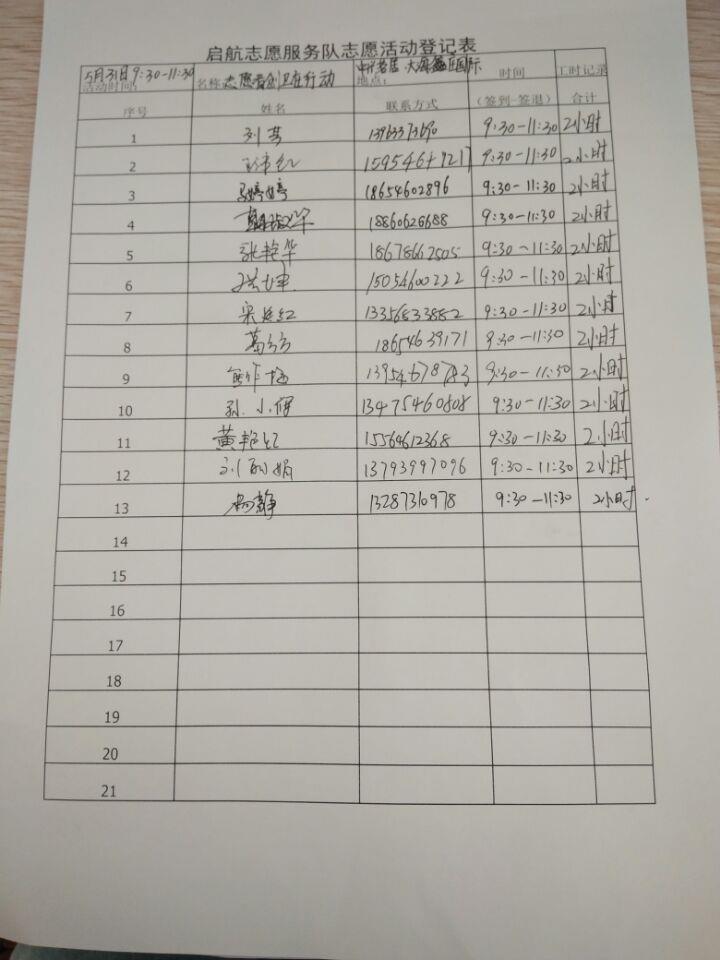 启航志愿服务队志愿活动登记表
5月31日 9:30-11:30 活动时间: 名称: 志愿者创卫在行动 地点: 大海 国际 时间 工时记录
序号 姓名 联系方式 (签到-签退) 合计
1 刘芳 13963373690 9:30-11:30 2小时
2 9:30-11:30 2小时
3 马婷婷 18654602896 9:30-11:30 2小时
4 18860626688 9:30-11:30 2小时
5 张艳华 18678662505 9:30-11:30 2小时
6 15054600222 9:30-11:30 2小时
7 宋延红 13356833882 9:30-11:30 2小时
8 葛 18654639171 9:30-11:30 2小时
9 13954678783 9:30-11:30 2小时
10 孙小 13475460808 9:30-11:30 2小时
11 黄艳红 15564612368 9:30-11:30 2小时
12 娟 13793997096 9:30-11:30 2小时
13 杨静 13287310978 9:30-11:30 2小时
14
15
16
17
18
19
20
21